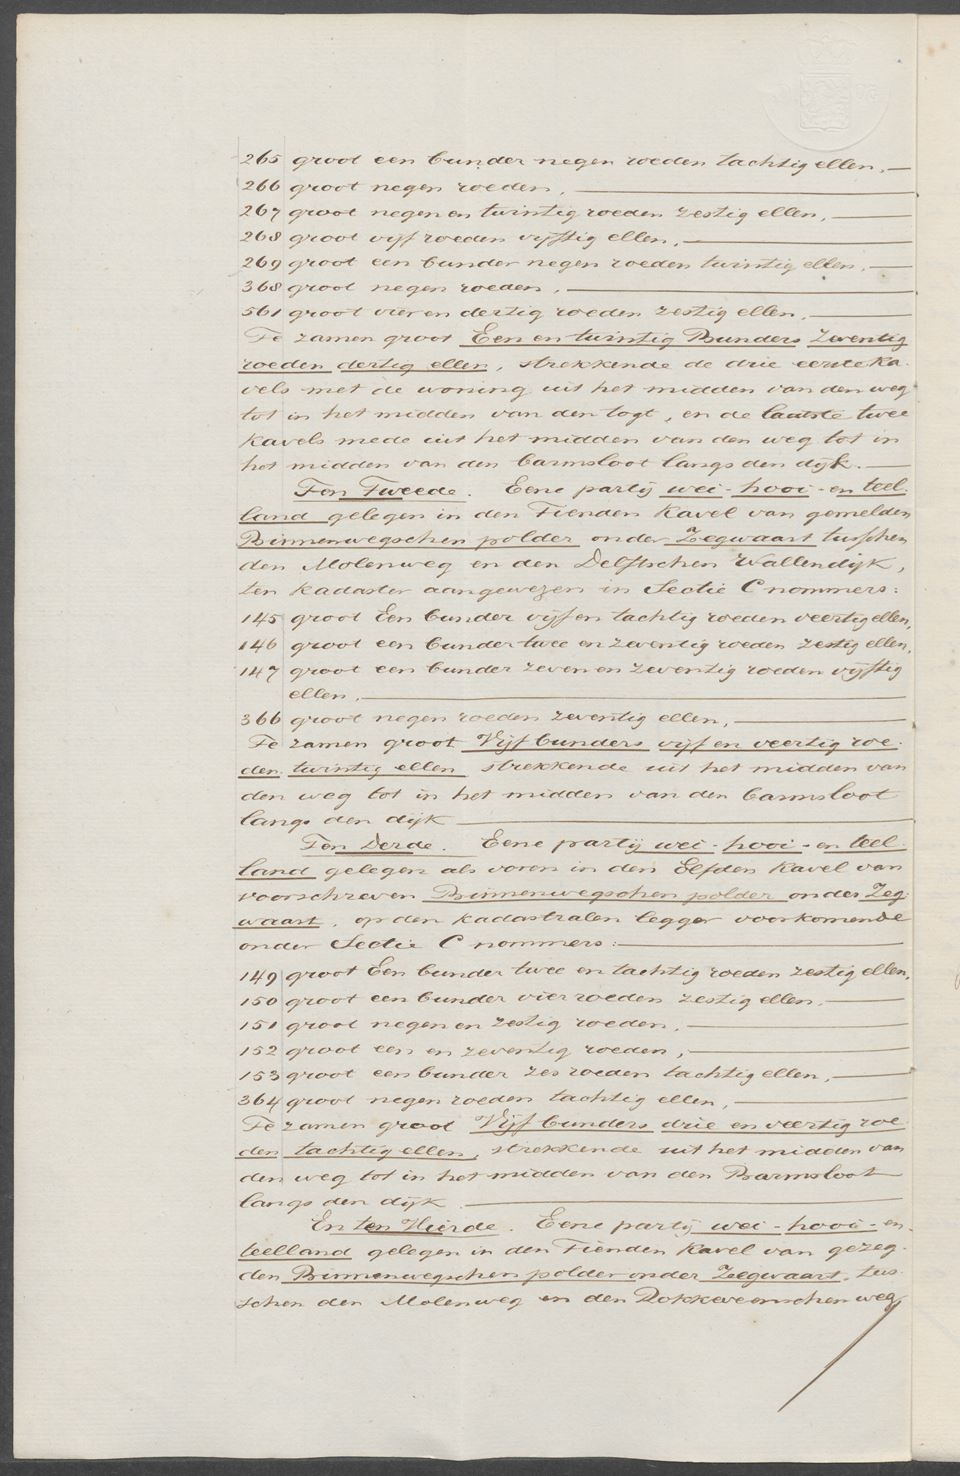 265 groot een bunder negen roeden tachtig ellen,
266 groot negen roeden,
267 groot negen en twintig roeden zestig ellen,
268 groot vijf roeden vijftig ellen,
269 groot een bunder negen roeden twintig ellen,
368 groot negen roeden,
561 groot vier en dertig roeden zestig ellen,
Te zamen groot Een en twintig Bunders Zeventig
roeden dertig ellen, strekkende de drie eerste Ka-
vels met de woning uit het midden van den weg
tot in het midden van den togt, en de laatste twee
Kavels mede uit het midden van den weg tot in
het midden van den barmsloot langs den dijk.
Ten Tweede. Eene partij wei- hooi- en teel-
land gelegen in den Tienden Kavel van gemelden
Binnenwegschen polder onder Zegwaart tusschen
den Molenweg en den Delftschen Wallendijk,
ten Kadaster aangewezen in Sectie C nommers:
145 groot Een bunder vijf en tachtig roeden veertig ellen,
146 groot een bunder twee en zeventig roeden zestig ellen,
147 groot een bunder zeven en zeventig roeden vijftig
ellen,
366 groot negen roeden zeventig ellen,
Te zamen groot Vijf bunders vijf en veertig roe-
den twintig ellen strekkende uit het midden van
den weg tot in het midden van den barmsloot
langs den dijk
Ten Derde. Eene partij wei- hooi- en teel-
land gelegen als voren in den Elfden Kavel van
voorschreven Binnenwegschen polder onder Zeg-
waart, op den kadastralen legger voorkomende
onder Sectie C nommers:
149 groot Een bunder twee en tachtig roeden zestig ellen,
150 groot een bunder vier roeden zestig ellen,
151 groot negen en zestig roeden,
152 groot een en zeventig roeden,
153 groot een bunder zes roeden tachtig ellen,
364 groot negen roeden tachtig ellen,
Te zamen groot Vijf bunders drie en veertig roe-
den tachtig ellen, strekkende uit het midden van
den weg tot in het midden van den Barmsloot
langs den dijk
En ten Vierde. Eene partij wei- hooi- en
teelland gelegen in den Tienden Kavel van gezeg-
den Binnenwegschen polder onder Zegwaart, tus-
schen den Molenweg en den Rokkeveenschen weg